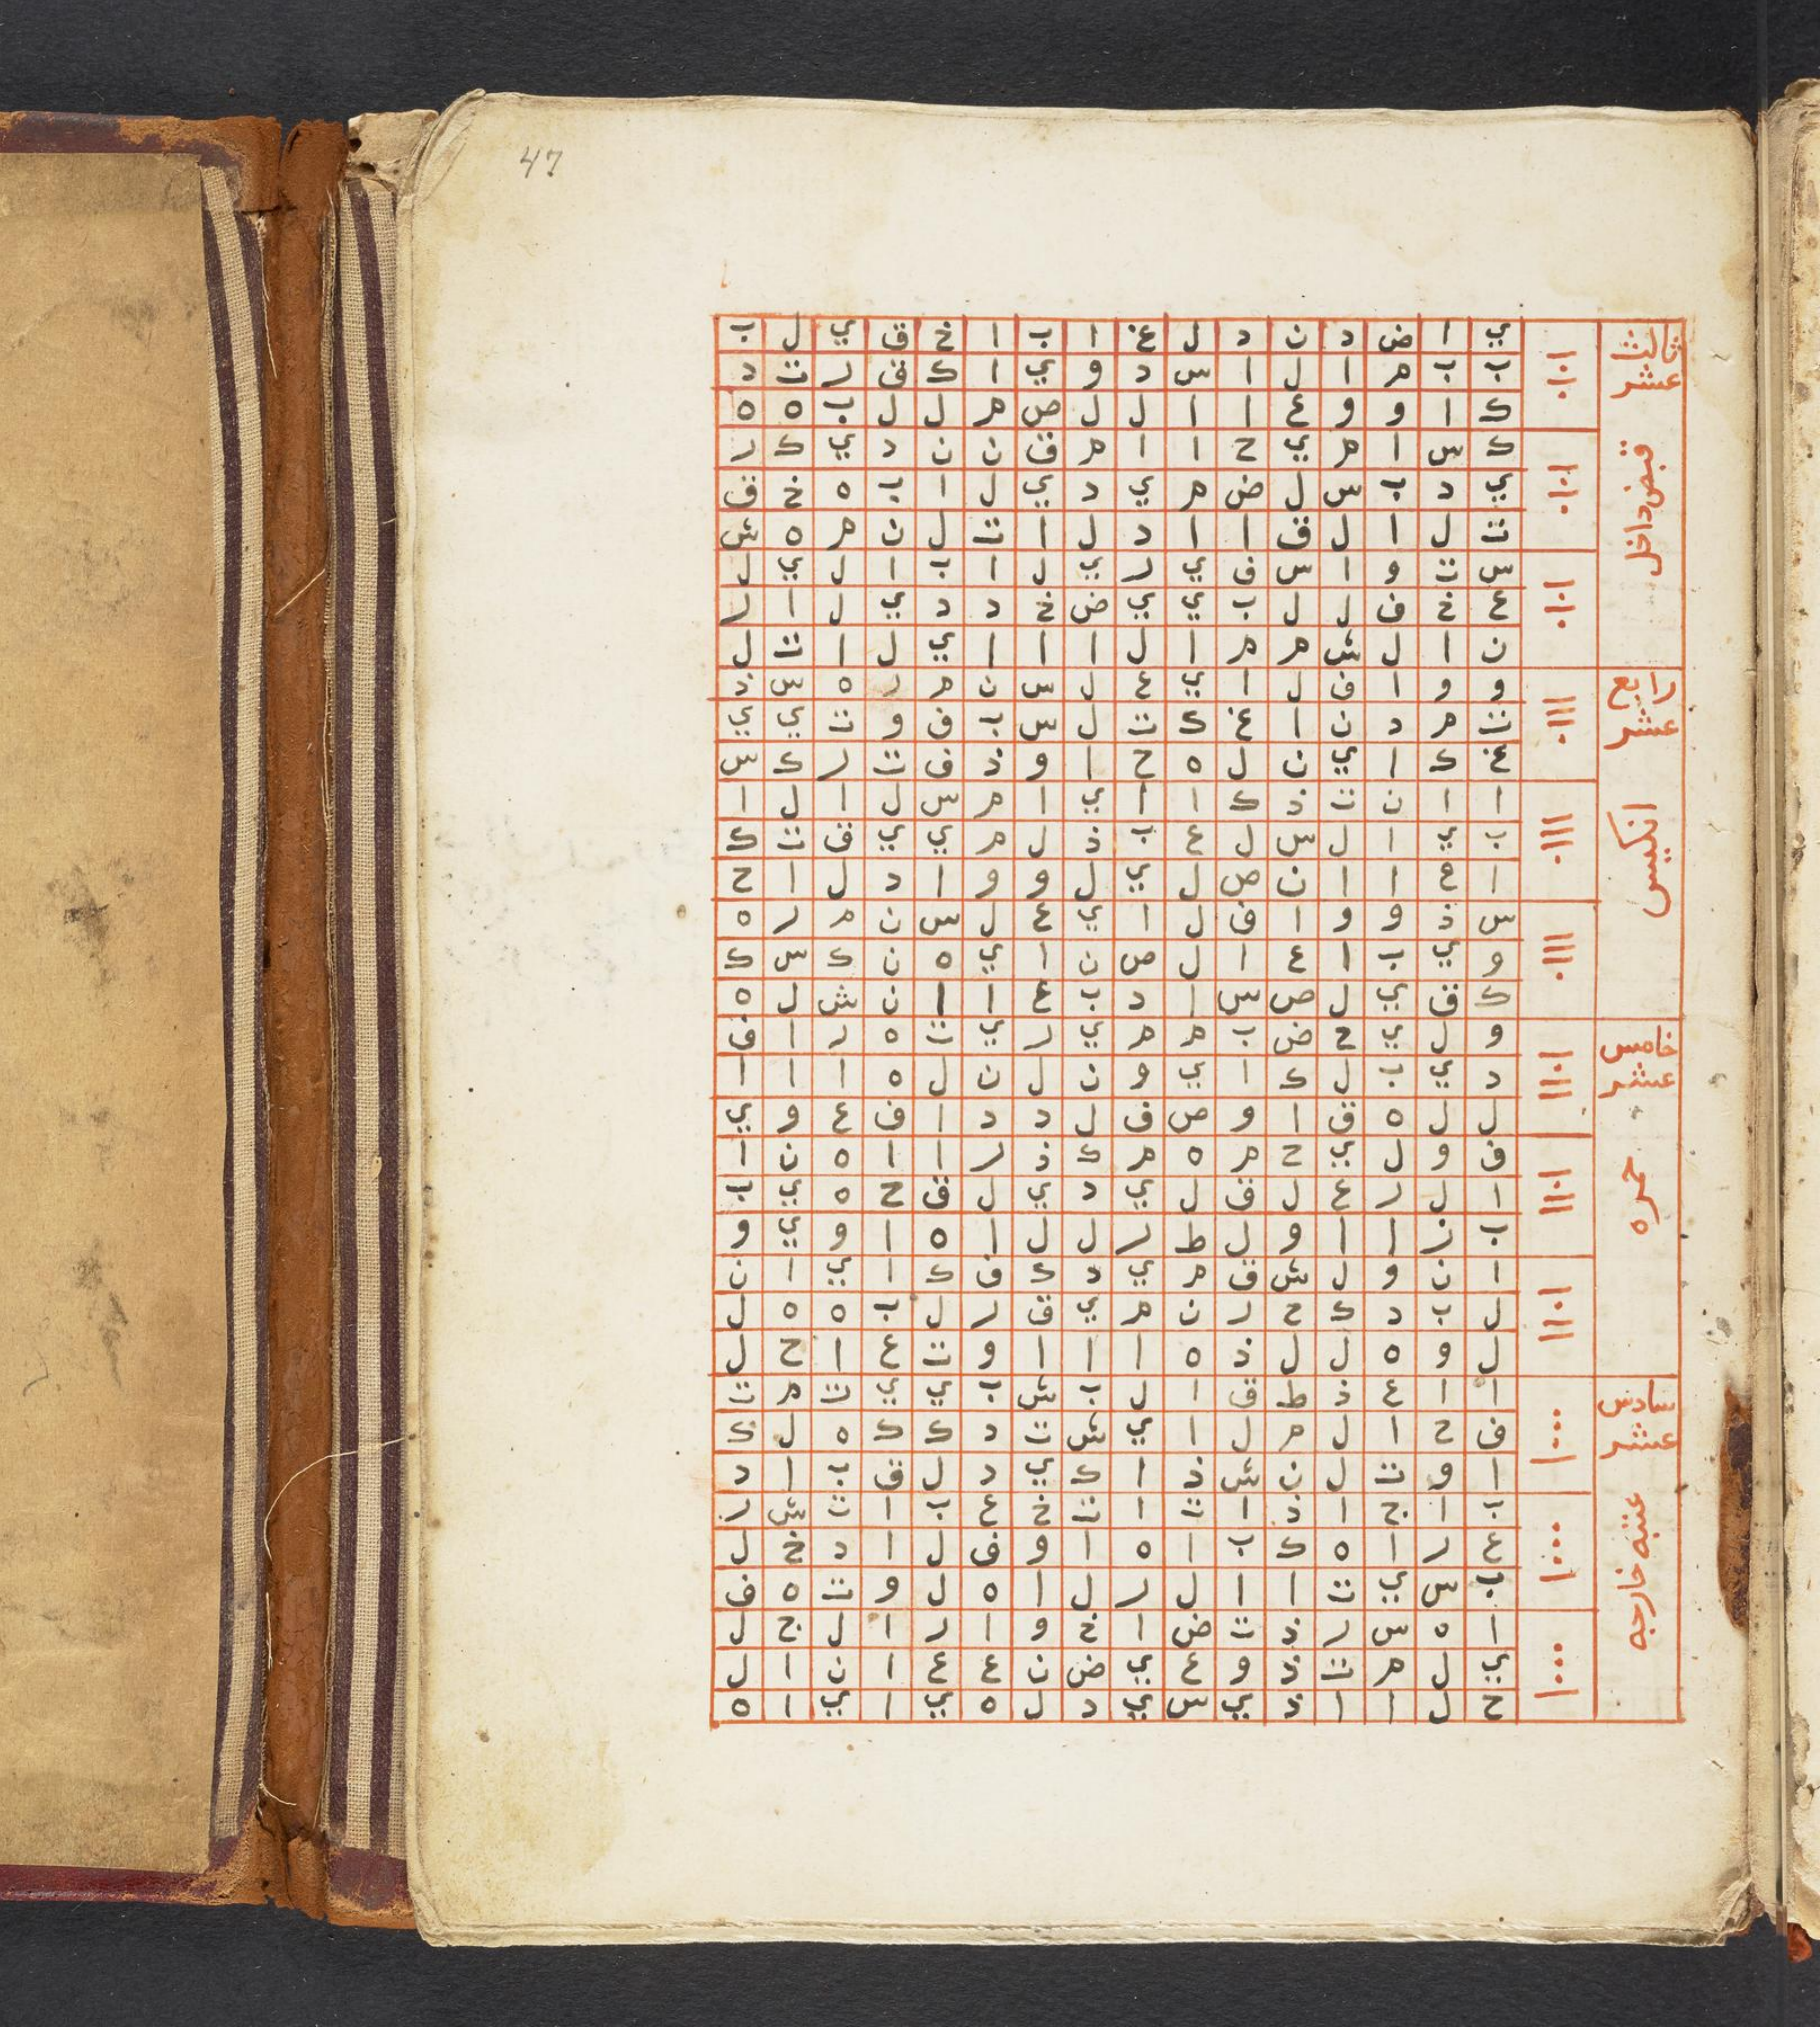 47
ثالث عشر
قبض داخل
ي ا ض د ن د ل غ ا ب ا خ ق ي ل ب
ب ب م ا ل ا س د و ي ا ك ق ر ت د
ك ا و و ع ا ا ل ل ص م ل ل ب ه ه
ك س ا م ي ح ا ا م ق ن ن د ي ك ر
ي د ب س ل ض م ي د ي ل ا ب ه خ ق
ت ل ا ل ق ا ا د ل ا ت ل ن م ه ش
س ت و ا س ف ي ر ي ل ا ب ا ل ي ل
ع خ ف ل ل ب ي ي ض خ د د ي ل ا ر
ن ا ل ش م م ا ل ا ا ا ي ل ا ت ل
رابع عشر
انكيس
و و ا ف ل ا ي ع ل س ن م ر ه س ذ
ت م د ن ا غ ك ت ل س ب ف و ت ي ي
غ ك ا ي ن ل ه ح ا و ذ ف ت ر ك س
ا ا ن ت ذ ك ا ا ي ا م س ل ا ل ا
ب ي ا ل س ل ع ب ذ ل م ي ي ق ت ك
ا ح ا ا ن ص ل ي ل و و ا د ل ا ح
س ذ و و ا ف ل ا ي ع ل س ن م ر ه
و ي ب ا ع ا ل ص ن ا ي ه ن ك س ك
ك ق ي ل ص س ا د ب ع ا ا ن ش ل ه
خامس عشر
حمره
و ل ي ح ض ب م م ي ر ي ت ه ر ا ق
د ي ب ل ك ا ي و ن ل ن ل ه ا ا ا
ل ل ه ق ا و ص ف ل د د ا ف ع و ي
ف و ل ي ح م ه م ك ذ ر ا ا ه ن ا
ا ل ر ع ل ق ل ي د ي ل ق ح ه ي ب
ب ز ا ا و ل ط ر ل ل ا ه ا و ي و
ا ن و ل ش ق م ي د ك ف ك ا ي ا ن
ل ب د ك ح ر ن م ي ق ر ل ب ه ه ل
ل و ه ل ل ذ ه ا ا ا و ت ع ا ح ل
سادس عشر
عتبه خارجه
ا ا ع ذ ط ق ا ل ب ش ب ي ي ت م ت
ف ح ا ل م ل ا ي ش ت د ك ك ه ل ك
ا و ت ل ن ش ذ ا ك ي د ل ق ب ا د
ب ا ج ا ذ ا ت ا ت خ ع ب ا ت ش ر
ع ر ا ه ك ب ا ه ا و ف ل ا د خ ل
ب س ي ت ا ا ل ر ل ا ه ل و ت ه ف
ا ه س ر ذ ت ض ا خ و ا ر ا ل ج ل
ي ل م ت ذ و ع ي ض ن ع ع ا ن ا ل
ح ل ا ا ذ ي س ي د ل ه ي ا ي ا ه